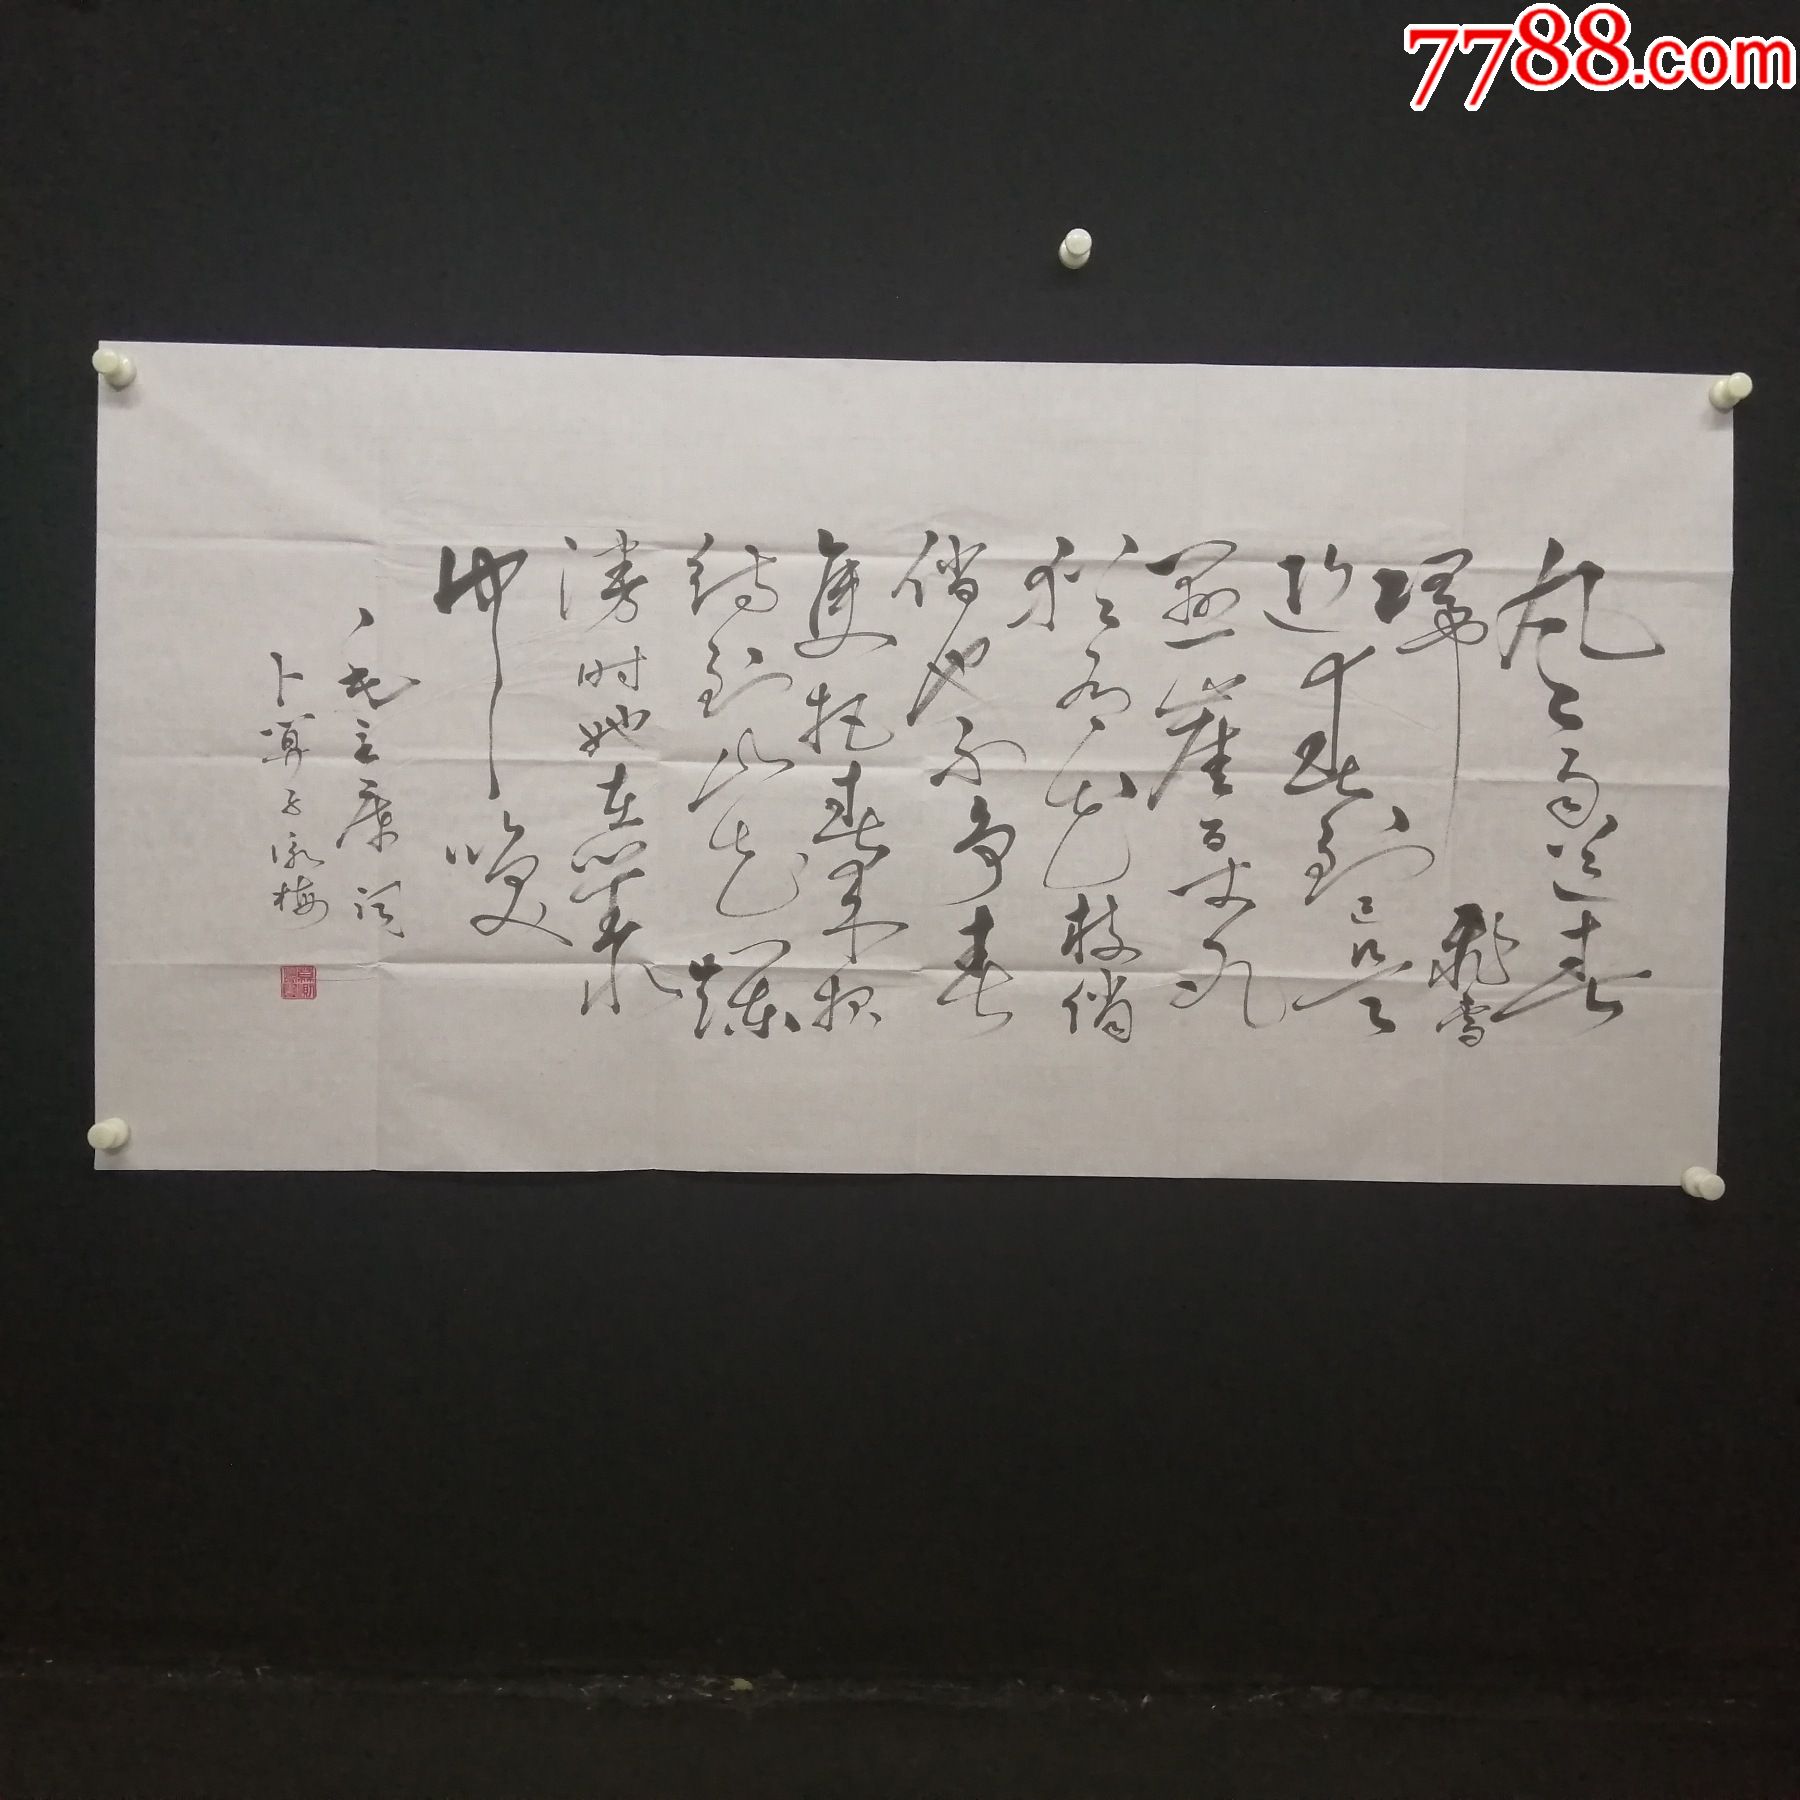 7788.com
風雨送春
歸飛雪
迎春到已是
懸崖百丈冰
猶有花枝俏
俏也不争春
隻把春来报
待到山花爛
漫时她在叢
中笑
毛主席词
卜算子詠梅